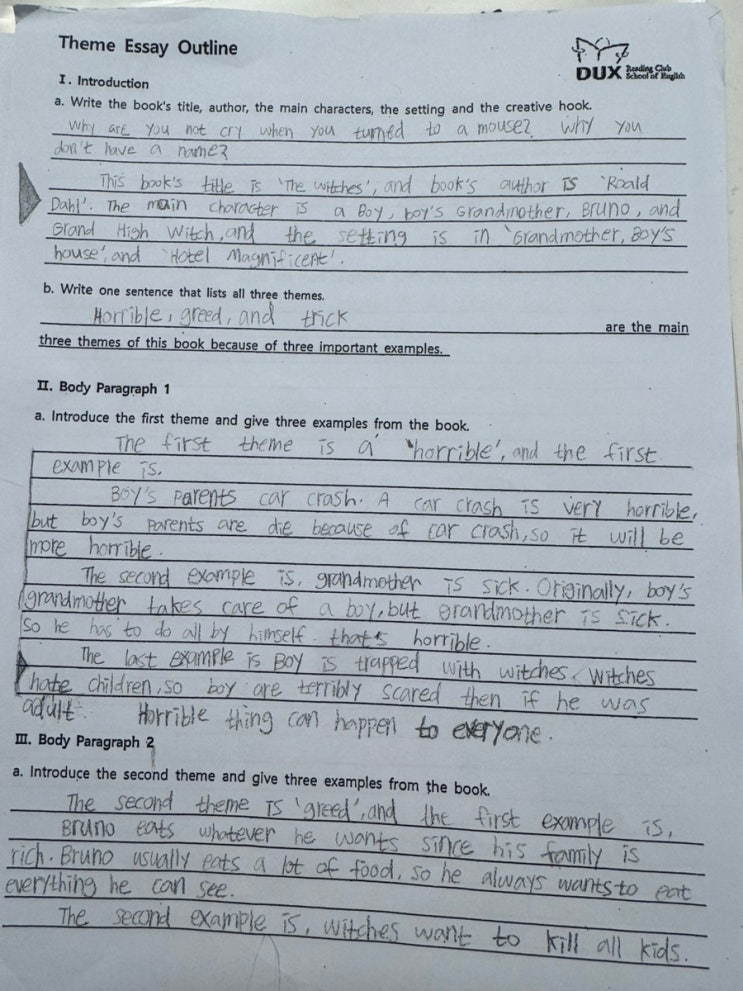 Theme Essay Outline
DUX Reading Club
School of English
I. Introduction
a. Write the book's title, author, the main characters, the setting and the creative hook.
Why are you not cry when you turned to a mouse? Why you
don't have a name?
This book's title is 'The witches', and book's author is 'Roald
Dahl'. The main character is a Boy, boy's Grandmother, Bruno, and
Grand High Witch, and the setting is in 'Grandmother, Boy's
house', and 'Hotel Magnificent'.
b. Write one sentence that lists all three themes.
Horrible, greed, and trick are the main
three themes of this book because of three important examples.
II. Body Paragraph 1
a. Introduce the first theme and give three examples from the book.
The first theme is a 'horrible', and the first
example is,
Boy's parents car crash. A car crash is very horrible,
but boy's parents are die because of car crash, so it will be
more horrible.
The second example is, grandmother is sick. Originally, boy's
grandmother takes care of a boy, but grandmother is sick.
So he has to do all by himself. that's horrible.
The last example is Boy is trapped with witches. Witches
hate children, so boy are terribly scared then if he was
adult. Horrible thing can happen to everyone.
III. Body Paragraph 2
a. Introduce the second theme and give three examples from the book.
The second theme is 'greed', and the first example is,
Bruno eats whatever he wants since his family is
rich. Bruno usually eats a lot of food, so he always wants to eat
everything he can see.
The second example is, witches want to kill all kids.